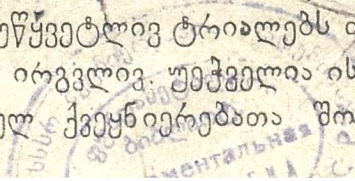 ეწყვეტლივ ტრიალებს
ირგვლივ. უეჭველია ის
ელ ქვეყნიერებათა შო
ментальная